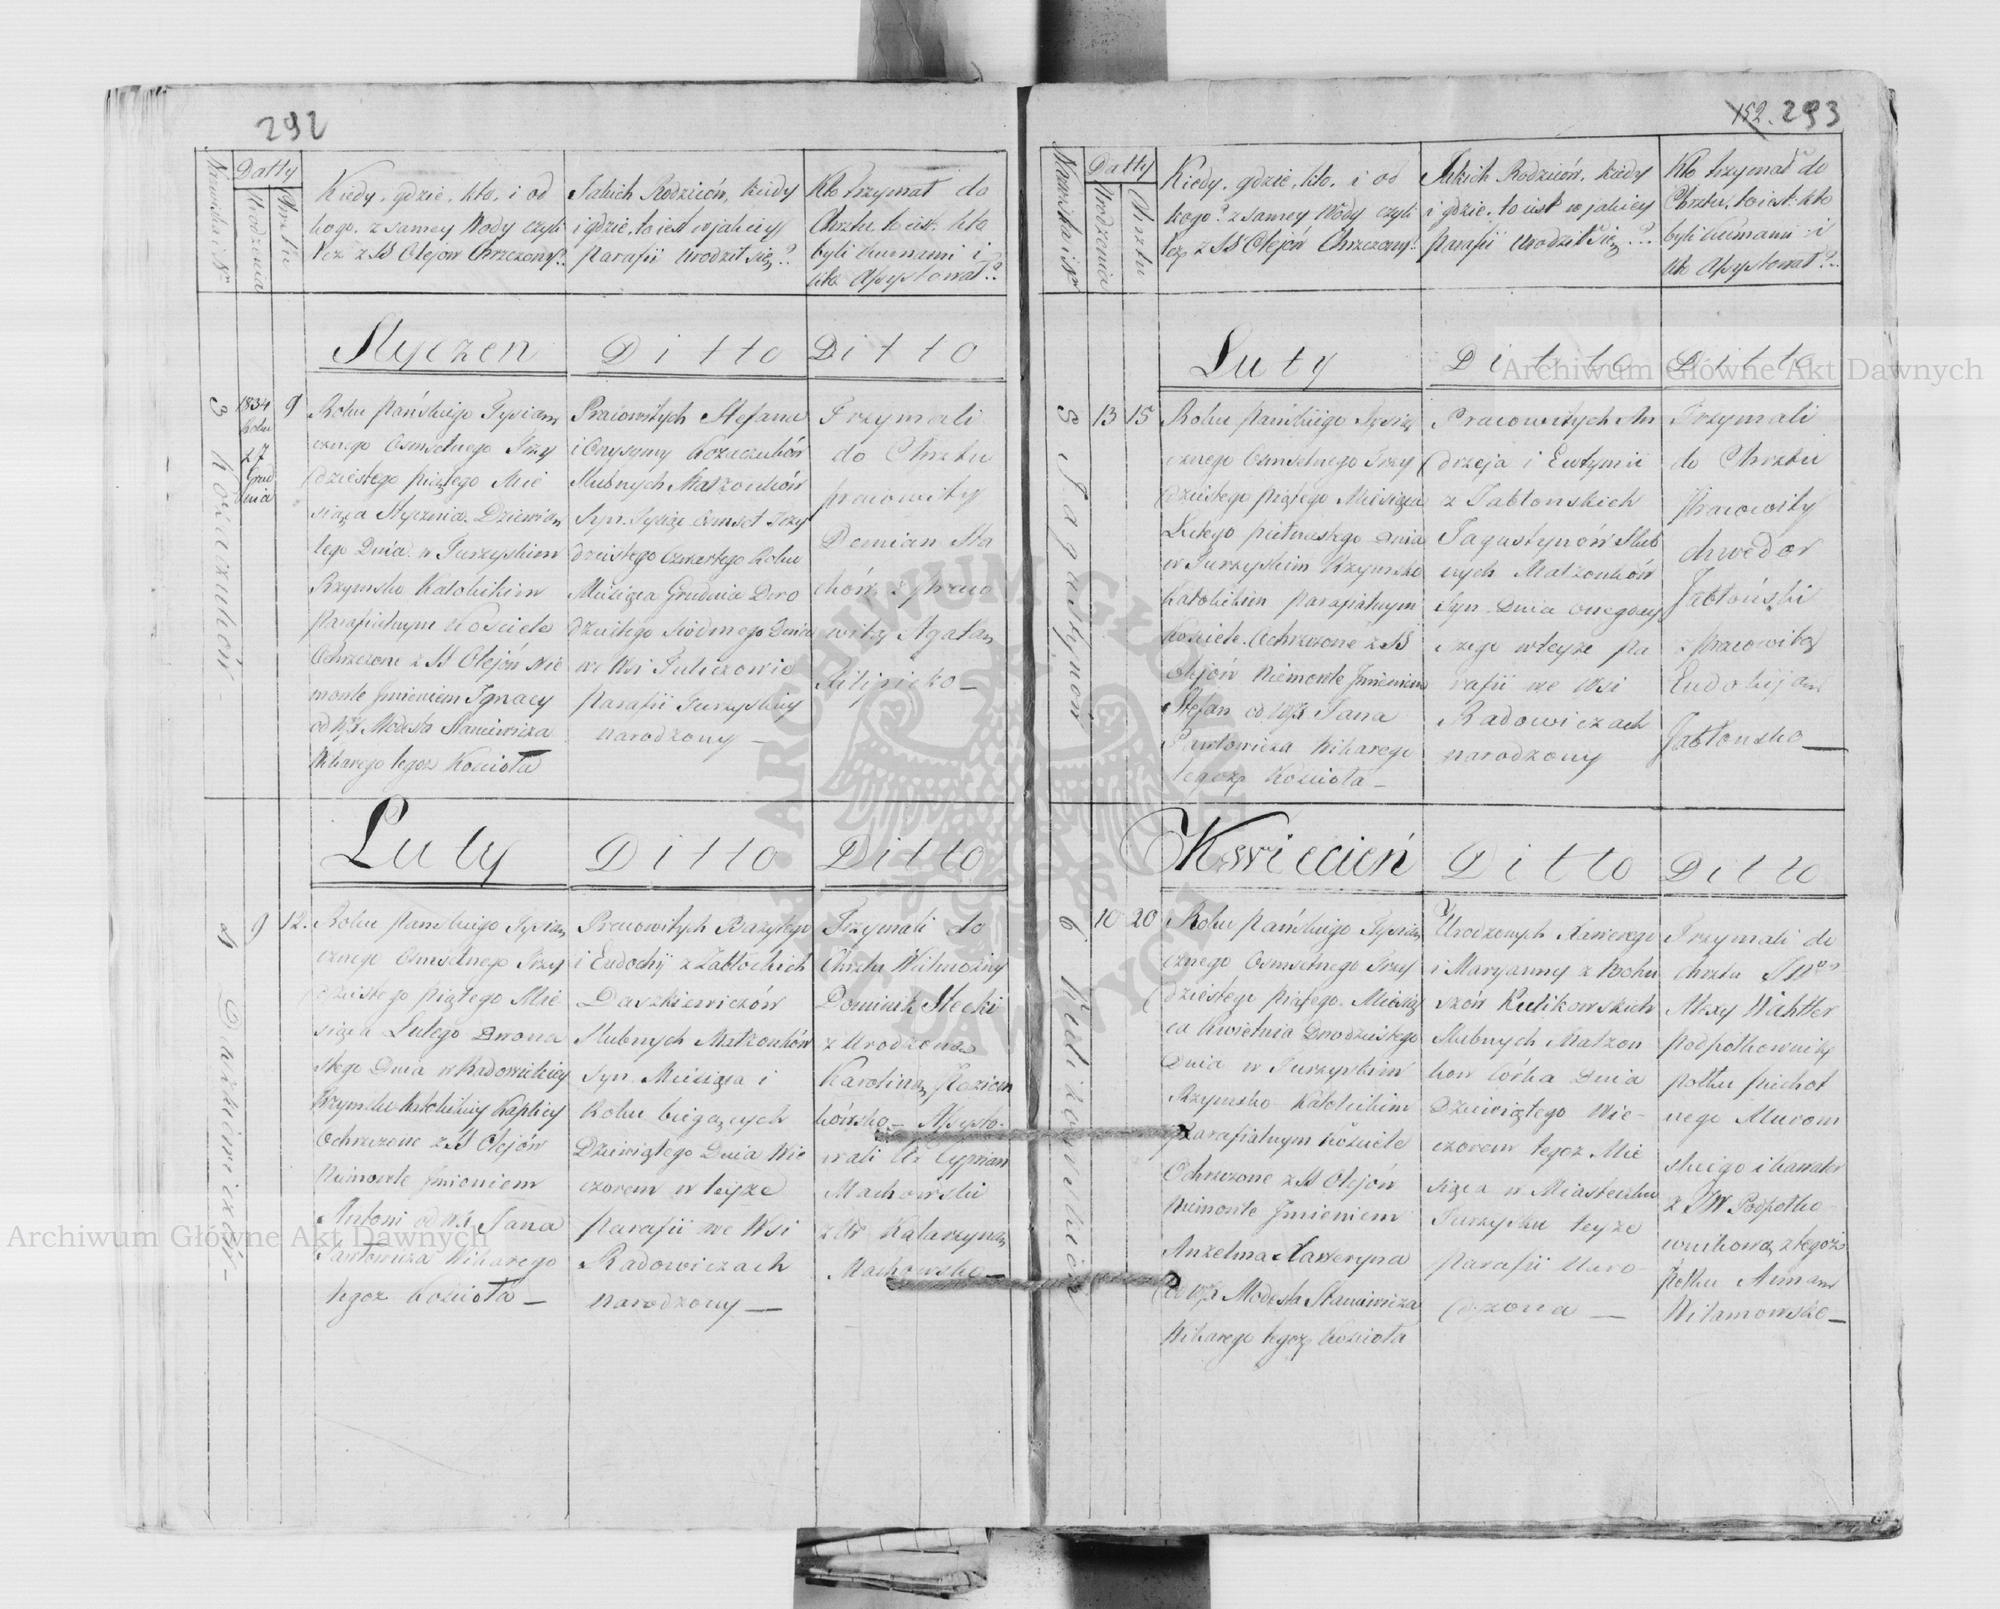 292
Datty
Urodzenia
Chrztu
Kiedy, gdzie, kto, i od
kogo, z samey Wody czyli
też z SS Olejow Chrzczony?
Jakich Rodziców, kiedy
i gdzie, to iest w jakiey
Parafii Urodził się?
Kto trzymał do
Chrztu, to iest: kto
byli Kumami i
kto Assystował?
Styczen
Ditto
Ditto
3
Kozaczuków
1834
Roku
27
Grud
nia
9
Roku Pańskiego Tysiąc
cznego Osmsetnego Trzy
dziestego piątego Mie
siąca Stycznia Dziewią
tego Dnia w Turzyskim
Rzymsko Katolickim
Parafialnym Kościele
Ochrzczone z SS Olejów Nie
mowle Jmieniem Ignacy
od WJX Modesta Staniewicza
Wikarego tegoż Kościoła
Pracowitych Stefana
i Onyszymy Kozaczuków
Slubnych Małżonków
Syn. Tysiąc Osmset Trzy
dziestego Czwartego Roku
Miesiąca Grudnia Dwo
dziestego Siódmego Dnia
we Wsi Tuliczowie
Parafii Turzyskiey
narodzony —
Trzymali
do Chrztu
pracowity
Demian Sta
chów, z praco
witą Agatą
Pilipicko —
Luty
Ditto
Ditto
4
Daszkiewiczów
9
12.
Roku Pańskiego Tysią
cznego Osmsetnego Trzy
dziestego piątego Mie
siąca Lutego Dwona
stego Dnia w Radowickiey
Rzymsko Katolickiey Kaplicy
Ochrzczone z SS Olejów
Niemowle Jmieniem
Antoni od WJX Jana
Pawłowicza Wikarego
tegoż Kościoła —
Pracowitych Bazylego
i Eudochij z Zabłockich
Daszkiewiczów
Slubnych Małżonków
Syn. Miesiąca i
Roku biegących
Dziewiątego Dnia Wie
czorem w teyże
Parafii we Wsi
Radowiczach
narodzony —
Trzymali do
Chrztu Wielmożny
Dominik Stecki
z Urodzoną
Karoliną
Assysto
wali Ur Cyprian
Machowski
z Ur Katarzyną
Machowsko —
152. 293
Datty
Urodzenia
Chrztu
Kiedy, gdzie, kto, i od
kogo? z samey Wody czyli
też z SS Olejów Chrzczony?
Jakich Rodziców, kiedy
i gdzie, to iest w jakiey
Parafii Urodził się?
Kto trzymał do
Chrztu, to iest: kto
byli Kumami i
kto Assystował?
Luty
Ditto
Ditto
5
Jagustynów
13
15
Roku Pańskiego Tysią
cznego Osmsetnego Trzy
dziestego piątego Miesiąca
Lutego piętnastego Dnia
w Turzyskim Rzymsko
Katolickim Parafialnym
Kościele Ochrzczone z SS
Olejów Niemowle Jmieniem
Stefan od WJX Jana
Pawłowicza Wikarego
tegoż Kościoła —
Pracowitych An
drzeja i Eutymii
z Jabłonskich
Jagustynów Slub
nych Małżonków
Syn. Dnia onegday
szego w teyże Pa
rafii we Wsi
Radowiczach
narodzony
Trzymali
do Chrztu
Pracowity
chwedor
Jabłoński
z Pracowitą
Eudokiją
Jabłonsko —
Kwiecień
Ditto
Ditto
6
Kulikowskich
10
20
Roku Pańskiego Tysią
cznego Osmsetnego Trzy
dziestego piątego. Miesią
ca Kwietnia Dwodziestego
Dnia w Turzyskim
Rzymsko Katolickim
Parafialnym Kościele
Ochrzczone z SS Olejów
Niemowle Jmieniem
Anzelma Xaweryna
od WJX Modesta Staniewicza
Wikarego tegoż Kościoła
Urodzonych Xawerego
i Maryanny z
Kulikowskich
Slubnych Małżon
kow Córka Dnia
Dziesiątego Wie-
czorem tegoż Mie
siąca w Miasteczku
Turzysku teyże
Parafii Uro
dzona —
Trzymali do
Chrztu
Alexy Wahtter
Podpołkownik
Połku piechot
nego Murom
skiego i kawaler
z JW Podpołko
wnikową z tegoż
Połku Anną
Witamowsko —
Archiwum Główne Akt Dawnych
Archiwum Główne Akt Dawnych
ARCHIWUM GŁÓWNE AKT DAWNYCH